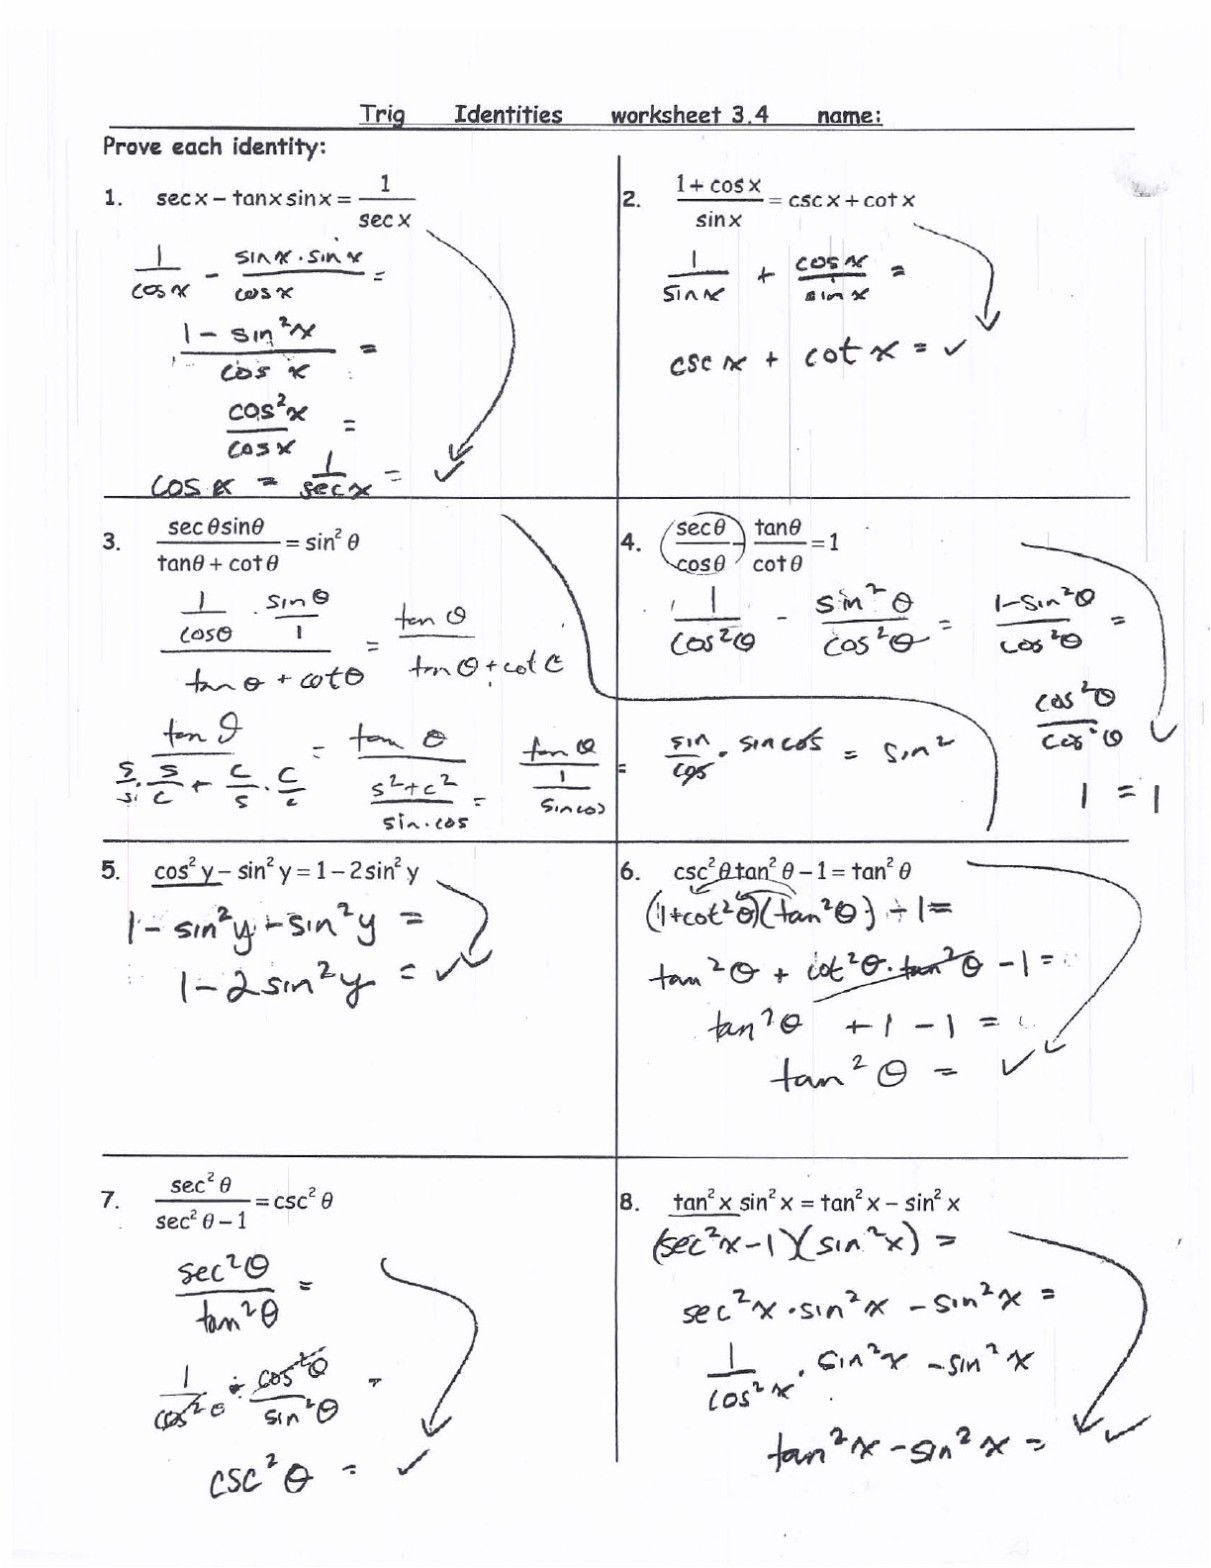 Trig Identities worksheet 3.4 name:
Prove each identity:
1. sec x − tan x sin x = 1/sec x
1/cos x − sin x · sin x/cos x =
1 − sin²x/cos x =
cos²x/cos x =
cos x = 1/sec x = ✓
2. 1 + cos x/sin x = csc x + cot x
1/sin x + cos x/sin x =
csc x + cot x = ✓
3. sec θ sin θ/tan θ + cot θ = sin² θ
1/cos θ · sin θ/1 / tan θ + cot θ = tan θ/tan θ + cot θ
tan θ / s/s · s/c + c/s · c/c = tan θ / s² + c²/sin · cos = tan θ / 1/sin cos = sin/cos · sin cos = sin²
4. sec θ/cos θ − tan θ/cot θ = 1
1/cos²θ − sin²θ/cos²θ = 1 − sin²θ/cos²θ =
cos²θ/cos²θ
1 = 1
5. cos² y − sin² y = 1 − 2 sin² y
1 − sin²y − sin²y =
1 − 2 sin²y = ✓
6. csc² θ tan² θ − 1 = tan² θ
(1 + cot²θ)(tan²θ) − 1 =
tan²θ + cot²θ · tan²θ − 1 =
tan²θ + 1 − 1 =
tan²θ = ✓
7. sec² θ/sec² θ − 1 = csc² θ
sec²θ/tan²θ =
1/cos²θ · cos²θ/sin²θ =
csc²θ = ✓
8. tan² x sin² x = tan² x − sin² x
(sec²x − 1)(sin²x) =
sec²x · sin²x − sin²x =
1/cos²x · sin²x − sin²x
tan²x − sin²x = ✓